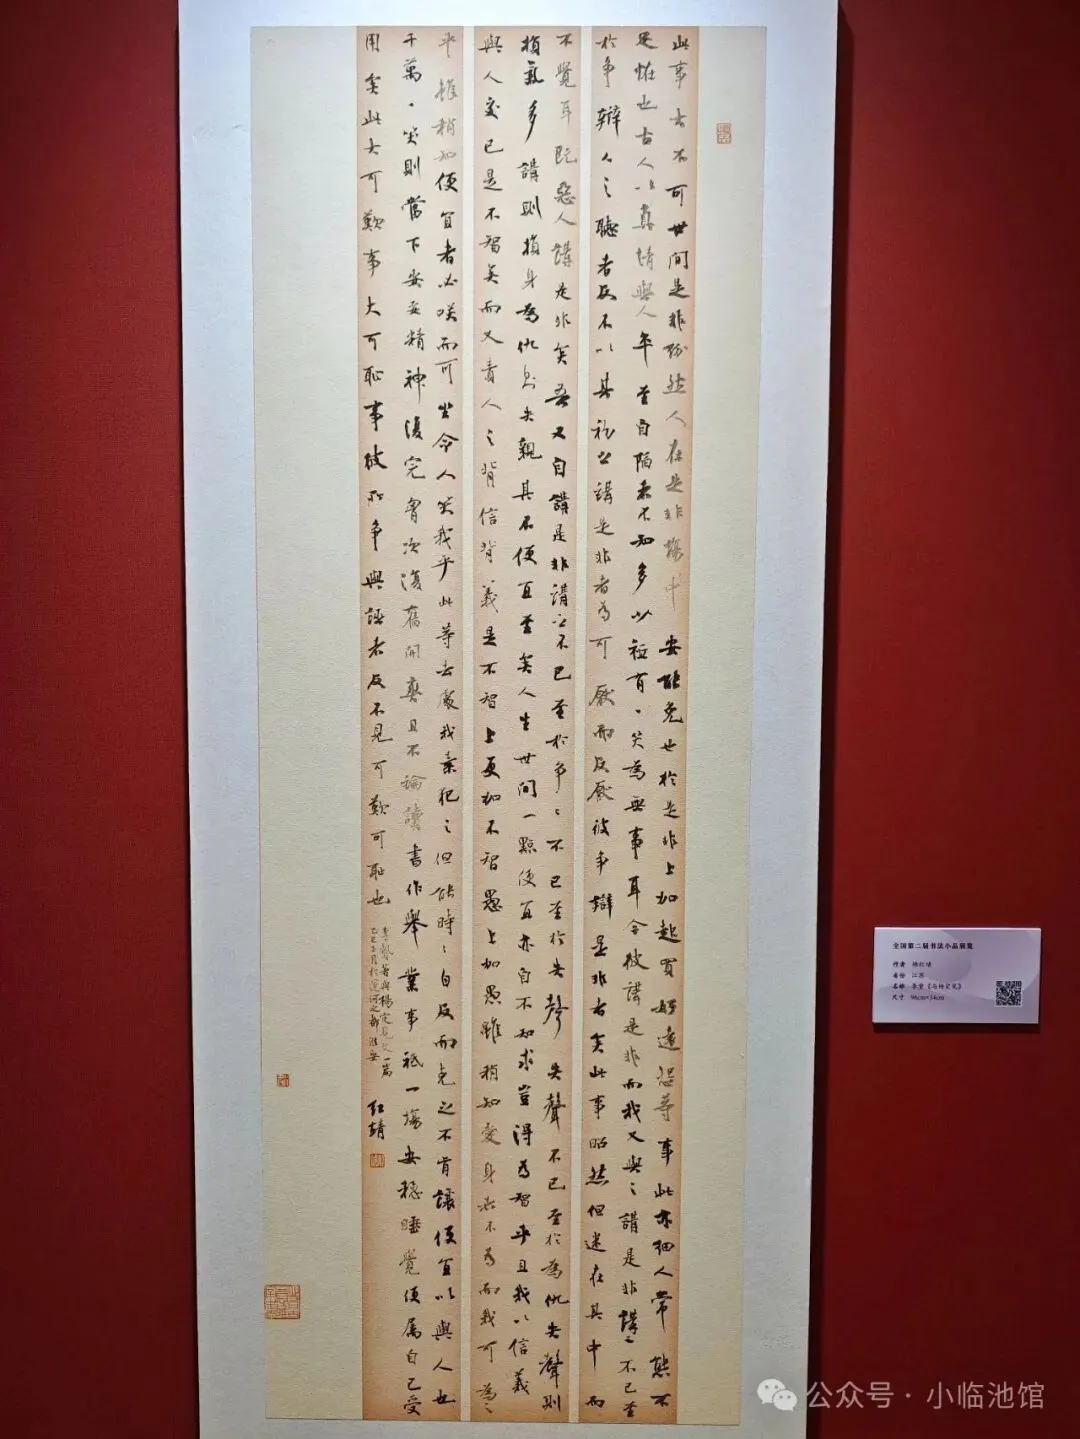 此事大不可世間是非紛然人在是非場中安能免也於是非上加起買好遠怨等事此亦細人常態不
足怪也古人以真情與人卒至自陷者不知多少祗有一笑為無事耳今彼講是非而我又與之講是非講之不已至
於争辯人之聽者反不以其初之講是非者為可厭而反厭彼争辯是非者矣此事昭然但迷在其中而
不覺耳既惡人講是非矣吾又自講是非講之不已至於争争不已至於失聲失聲不已至於為仇失聲則
損氣多講則損身為仇則失親其不便宜甚矣人生世間一點便宜亦自不知求豈得為智乎且我以信義
與人交已是不智矣而又責人之背信背義是不智上更加不智愚上加愚雖稍知愛身者不為而我可為之
乎雖稍知便宜者必咲而可坐令人笑我乎此等去處我素犯之但能時時自反而克之不肯讓便宜以與人也
千萬一笑則當下安妥精神復完胸次復舊開爽且不論讀書作舉業事祗一場安穩睡覺便屬自己受
用矣此大可歎事大可恥事彼所争與誣者反不見可歎可恥也
李贄著與楊定見文一篇
乙巳五月於運河之都淮安
红靖
全国第二届书法小品展览
作者 杨红靖
省份 江苏
名称 李贽《与杨定见》
尺寸 98cm×34cm
公众号·小临池馆